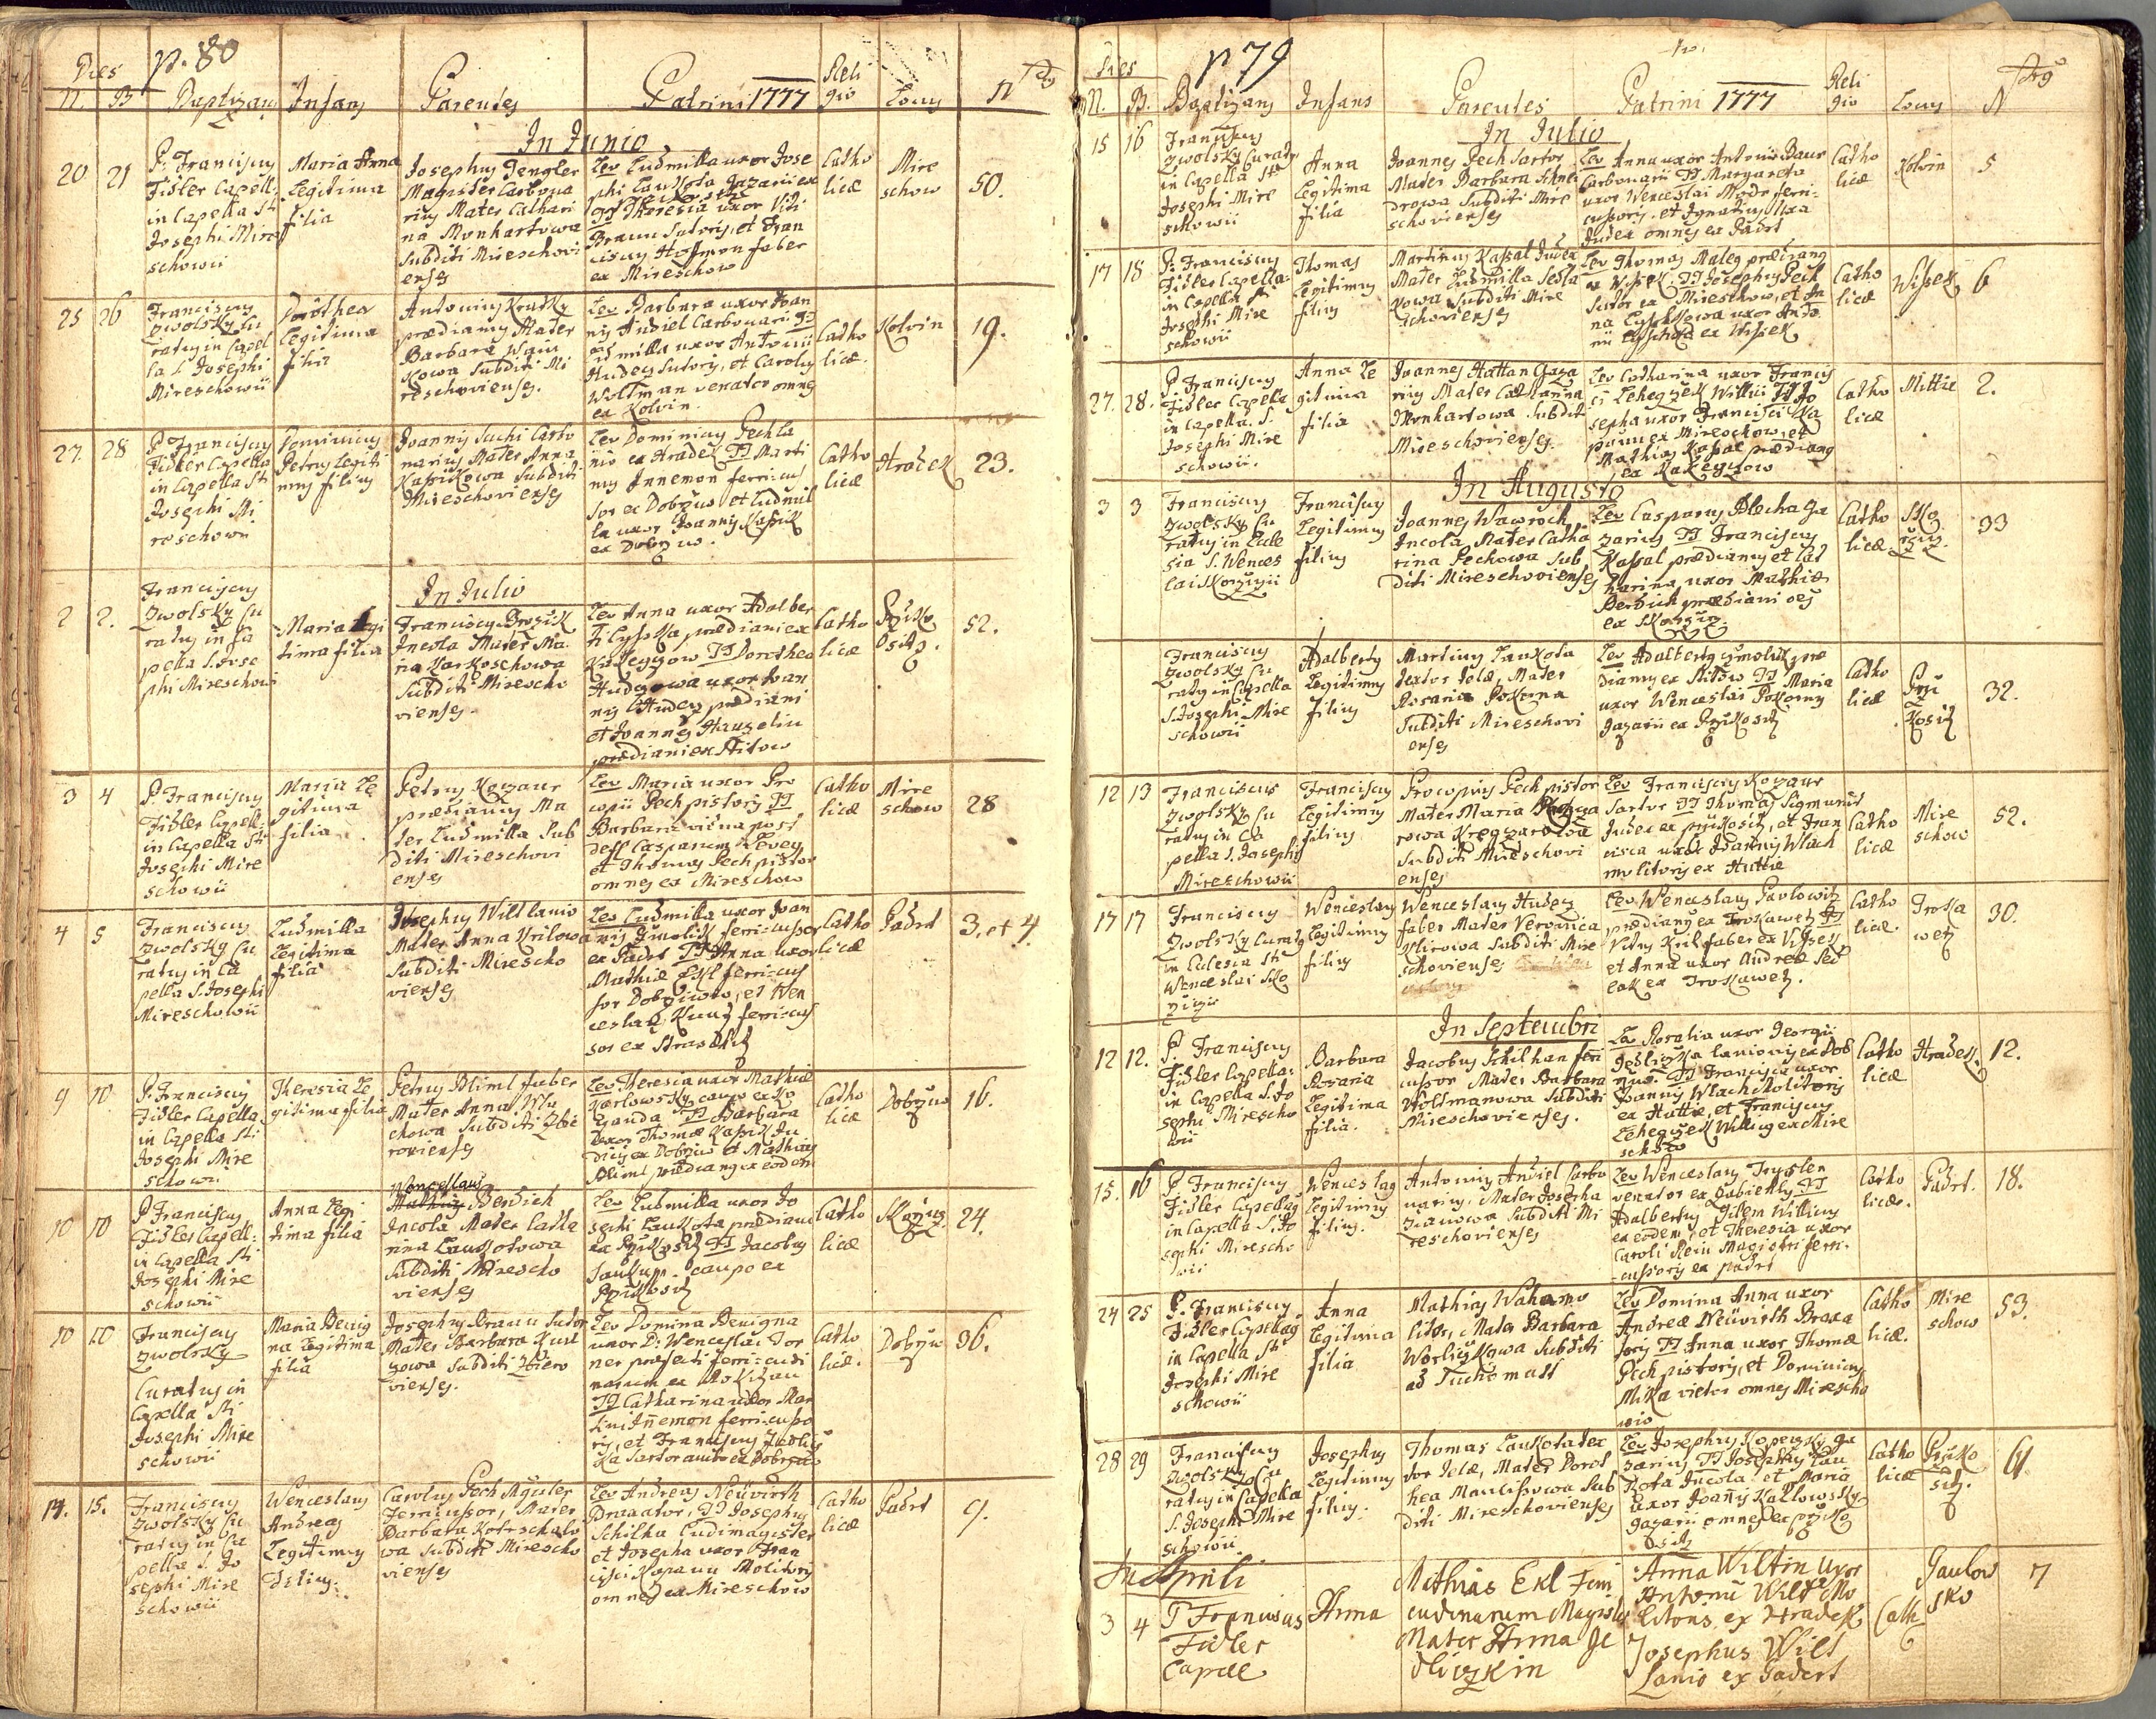 p. 80
Dies
N. B Baptizans Infans Parentes Patrini 1777 Reli
gio Locus N
In Junio
20 21
P. Franciscus
Fidler Capell:
in Capella Sti
Josephi Mire
schowii
Maria Anna
Legitima
filia
Josephus Tengler
Magister Carbona
rius Mater Cathari
na Monhartowa
Subditi Mireschovi
enses
Lev Ludmilla uxor Jose
phi Laukota Gazarii ex
TT Theresia uxor Viti
Braun Sutoris, et Fran
ciscus Hofmon faber
ex Mireschow
Catho
licae
Mire
schow
50.
25 26
Franciscus
Zwolsky Cu
ratus in Capel
la S. Josephi
Mireschowii
Dorothea
Legitima
filia
Antonius Kratky
praedianus Mater
Barbara
kowa Subditi Mi
reschovienses.
Lev Barbara uxor Joan
nis Andiel Carbonari TT
Ludmilla uxor Antonii
Hudecz Sutoris, et Carolus
Woltman venator omnes
ex Kolvin
Catho
licae.
Kolvin
19.
27. 28
P Franciscus
Fidler Capella
in Capella Sti
Josephi Mi
reschowii
Dominicus
Petrus Legiti
mus filius
Joannis Suchi Carbo
narius, Mater Anna
Kassikowa Subditi
Mireschovienses
Lev Dominicus Pechla
nio ex Hradek TT Marti
nus Innemon ferricus
sor ex Dobržiw et Ludmil
la uxor Joannis Kassik
ex Dobrziw.
Catho
licae
Hradek
23.
In Julio
2 2.
Franciscus
Zwolsky Cu
ratus in Ca
pella S. Jose
phi Mireschowi
Maria Legi
tima filia
Franciscus Brozik
Incola Mater Ma
ria Karkoschowa
Subditi Mirescho
vienses.
Lev Anna uxor Adalber
ti Cypska praediani ex
Kakeyzow TT Dorothea
Hudczowa uxor Joan
nis Hudecz praediani
et Joannes Hauzelin
praediani ex Stitow
Catho
licae
Pržiko
sitz.
52.
3 4
P. Franciscus
Fidler Capell:
in Capella Sti
Josephi Mire
schowii
Maria Le
gitima
filia
Petrus Kozaur
praedianus Ma
ter Ludmilla Sub
diti Mireschovi
enses
Lev Maria uxor Pro
copii Pech pistoris TT
Barbara vidua post
deff Casparum Levey
et Thomas Pech pistor
omnes ex Mireschow
Catho
licae
Mire
schow
28
4 5
Franciscus
Zwolsky Cu
ratus in Ca
pella S. Josephi
Mireschowii
Ludmilla
Legitima
filia
Josephus Wilt lanio
Mater Anna Krilowa
Subditi Mirescho
vienses
Lev Ludmilla uxor Joan
nis Smolik ferricussor
ex Padrt TT Anna uxor
Mathiae Ekl ferricus
sor Dobrziwio, et Wen
ceslaus Kunz ferricus
sor ex Straschitz
Catho
licae
Padrt
3. et 4.
9 10.
P. Franciscus
Fidler Capella
in Capella Sti
Josephi Mire
schowi.
Theresia Le
gitima filia
Petrus Bliml faber
Mater Anna
chowa Subditi Zbi
rovienses
Lev Theresia uxor Mathiae
Karlowsky caupo ex
TT Barbara
Uxor Thomae Kassik Ju
dicis ex Dobrziw et Mathias
Bliml praedianus ex eodem
Catho
licae
Dobrziw
16.
10 10
P Franciscus
Fidler Capell:
in Capella Sti
Josephi Mire
schowii
Anna Legi
tima filia
Wenceslaus
Mathias Berdich
Incola Mater Catha
rina Laukotowa
Subditi Mirescho
vienses
Lev Ludmilla uxor Jo
sephi Laukota praediani
ex Pržikositz TT Jacobus
Saukup caupo ex
Pržikositz
Catho
licae
Skorzicz
24.
10 10
Franciscus
Zwolsky
Curatus in
Capella Sti
Josephi Mire
schowii
Maria Benig
na Legitima
filia
Josephus Braun Sutor
Mater Barbara
zowa Subditi Zbiro
vienses.
Lev Domina Benigna
uxor D: Wenceslai Dor
ner praefecti ferricudi
narum ex Rokitzan
TT Catharina uxor Mar
tini Innemon ferricusso
ris, et Franciscus Jedlicz
ka Sartor ambo ex Dobrziw
Catho
licae.
Dobrziw
36.
14. 15.
Franciscus
Zwolsky Cu
ratus in Ca
pella S. Jo
sephi Mire
schowii
Wenceslaus
Andreas
Legitimus
Filius:
Carolus Pech Mgister
Ferricussor, Mater
Barbara Kotrschalo
wa Subditi Mirescho
vienses
Lev Andreas Neüwirth
Braxator, TT Josephus
Schilha Ludimagister
et Josepha uxor Fran
cisci Kapaun Molitoris
omnes ex Mireschow
Catho
licae
Padrt
9.
p 79
Dies
N. B. Baptizans Infans Parentes Patrini 1777 Reli
gio Locus N
In Julio
15 16
Franciscus
Zwolsky Curatus
in Capella Sti
Josephi Mire
schowii
Anna
Legitima
filia
Joannes Pech Sartor
Mater Barbara Schnei
drowa Subditi Mire
schovienses
Lev Anna uxor Antonii Baur
Carbonarii TT Margareta
uxor Wenceslai Modr ferri-
cussoris, et Ignatius
Judex omnes ex Padrt
Catho
licae
Kolvin
5
17 18
P. Franciscus
Fidler Capella
in Capella Sti
Josephi Mire
schowii
Thomas
Legitimus
filius
Martinus Kassal Judex
Mater Ludmilla Sedla
kowa Subditi Mire
schovienses
Lev Thomas Maleg praedianus
ex Wissek TT Josephus Pech
Sutor ex Mireschow, et An
na Cypskowa uxor Anto
nii Cypska ex Wissek
Catho
licae
Wissek
6
27. 28.
P Franciscus
Fidler Capella
in Capella. S.
Josephi Mire
schowii.
Anna Le
gitima
filia
Joannes Hattan Gaza
rius Mater Catharina
Monhartowa Subditi
Mireschovienses.
Lev Catharina uxor Francis
ci Lehegzek Willici TT Jo
sepha uxor Francisci Ka
paun ex Mireschow, et
Mathias Kassal praedianus
ex Kakegzow
Catho
licae
Mittie
2.
In Augusto
3 3
Franciscus
Zwolsky Cu
ratus in Eccle
sia S. Wences
lai Skorzizii
Franciscus
Legitimus
filius
Joannes Wawroch
Incola, Mater Catha
rina Pechowa Sub
diti Mireschovienses
Lev Casparus Blecha Ga
zarius TT Franciscus
Kassal praedianus et Cat
harina uxor Mathiae
Berdich praediani oes
ex Skorziz.
Catho
licae.
Sko
rziz.
33
Franciscus
Zwolsky Cu
ratus in Capella
S. Josephi Mire
schowii
Adalbertus
Legitimus
filius
Martinus Laukota
textor telae, Mater
Rosaria Pokorna
Subditi Mireschovi
enses
Lev Adalbertus Smolik prae
dianus ex Stitow TT Maria
uxor Wenceslai Pokorny
Gazarii ex Pržikositz
Catho
licae
Prži
kositz
32.
12 13
Franciscus
Zwolsky Cu
ratus in Ca
pella S. Josephi
Mireschowii
Franciscus
Legitimus
filius
Procopius Pech pistor
Mater Maria
rowa Kregzarowa
Subditi Mireschovi
enses
Lev Franciscus Kozaur
Sartor TT Thomas Sigmund
Judex ex Pržikositz, et Fran
cisca uxor Joannis Wlach
molitoris ex Huttie
Catho
licae
Mire
schow
52.
17 17
Franciscus
Zwolsky Curatus
in Ecclesia Sti
Wenceslai Sko
rzizii
Wenceslaus
Legitimus
filius
Wenceslaus Hudecz
faber Mater Veronica
Klirowa Subditi Mire
schovienses
Lev Wenceslaus Pavlowitz
praedianus ex Trokawetz TT
Petrus Kril faber ex Wissek
et Anna uxor Andreae Sed
lak ex Trokawetz.
Catho
licae.
Troka
wetz
30.
In Septembri
12 12.
P. Franciscus
Fidler Capella:
in Capella S. Jo
sephi Mirescho
wii
Barbara
Rosaria
Legitima
filia.
Jacobus Schilhan ferri
cussor Mater Barbara
Woltmanowa Subditi
Mireschovienses.
Lev Rosalia uxor Georgii
Jedliczka lanionis ex Dob
rziw. TT Francisca uxor
Joannis Wlach Molitoris
ex Huttie, et Franciscus
Lehegzek Willicus ex Mire
schow
Catho
licae
Hradek.
12.
15. 16
P Franciscus
Fidler Capellanus
in Capella S. Jo
sephi Mirescho
wii
Wenceslaus
Legitimus
filius.
Antonius Andiel Carbo
narius, Mater Josepha
Zianowa Subditi Mi
reschovienses
Lev Wenceslaus Trysler
venator ex Zabiehla TT
Adalbertus Tilem Willicus
ex eodem, et Theresia uxor
Caroli Rein Magistri ferri-
cussoris ex Padrt
Catho
licae.
Padrt.
18.
24 25
P. Franciscus
Fidler Capellanus
in Capella Sti
Josephi Mire
schowii
Anna
Legitima
filia
Mathias Waha mo
litor, Mater Barbara
Worliczkowa Subditi
ad Tuchomast
Lev Domina Anna uxor
Andreae Neüwirth Braxa
toris TT Anna uxor Thomae
Pech pistoris, et Dominicus
Mika vietor omnes Mirescho
wio
Catho
licae.
Mire
schow
53.
28 29
Franciscus
Zwolsky Cu
ratus in Capella
S. Josephi Mire
schowii
Josephus
Legitimus
filius.
Thomas Laukota tex
tor telae, Mater Dorot
hea Maulissowa Sub
diti Mireschovienses
Lev Josephus Kopeczky ga
zarius TT Josephus Lau
kota Incola et Maria
uxor Joannis Karlowsky
gazarii omnes ex Pržiko
sitz
Catho
licae
Pržiko
sitz.
61
In Aprili
3 4
P Franciscus
Fidler
Capell
Anna
Mathias Ekl Ferri
cudinarum Magister
Mater Anna Je
dliczkin
Anna Wiltin Uxor
Antonii Wilt Mo
litoris ex Hradek
Josephus Wilt
Lanio ex Padert
Cath
Paulow
sko
7